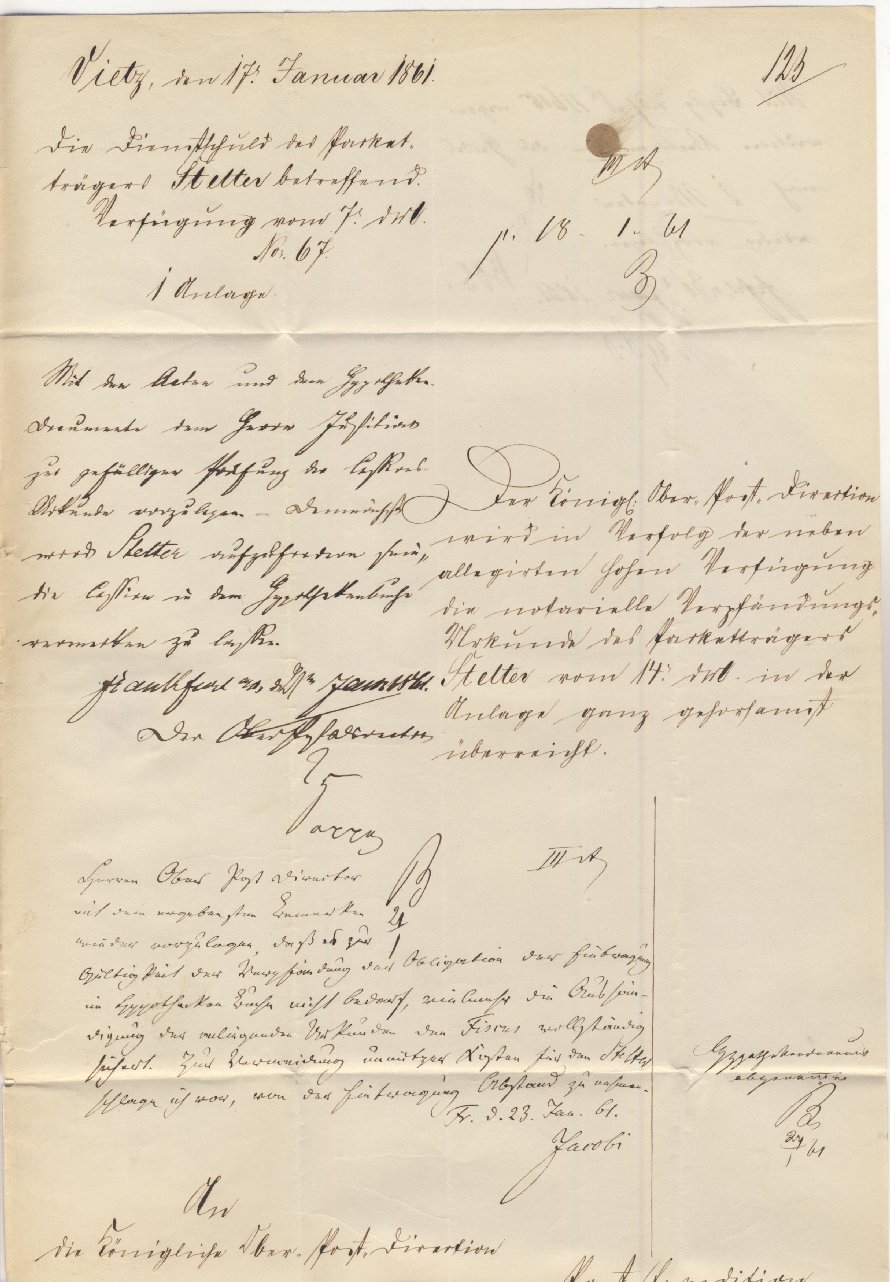 Vietz, den 17t. Januar 1861.
123
Die Dienstschuld des Packet-
trägers Stelter betreffend.
Verfügung vom 7t. d. Mts.
No. 67.
1 Anlage.
III A
p. 18. 1. 61
B
Mit den Acten und dem Hypotheken-
Documente dem Herrn Justitiar
zur gefälligen Prüfung der Cessions-
Urkunde vorzulegen. – Demnächst
wird Stelter aufzufordern sein,
die Cession in dem Hypothekenbuche
vermerken zu lassen.
Frankfurt a/O, d. Januar 1861.
Der Oberpostdirector
Der Königl. Ober-Post-Direction
wird in Verfolg der neben
allegirten hohen Verfügung
die notarielle Verpfändungs-
Urkunde des Packetträgers
Stelter vom 14t. d. Mts. in der
Anlage ganz gehorsamst
überreicht.
III A
B
21
1
Herrn Ober Post Director
mit dem ergebensten Bemerken
wieder vorzulegen, daß es zur
Gültigkeit der Verpfändung der Obligation der Eintragung
im Hypotheken Buche nicht bedarf, vielmehr die Aushän-
digung der anliegenden Urkunden den Fiscus vollständig
sichert. Zur Vermeidung unnützer Kosten für den Stelter
schlage ich vor, von der Eintragung Abstand zu nehmen.
Fr. d. 23. Jan. 61.
Jacobi
abgenommen
B
1 61
An
die Königliche Ober-Post-Direction
Post Expedition